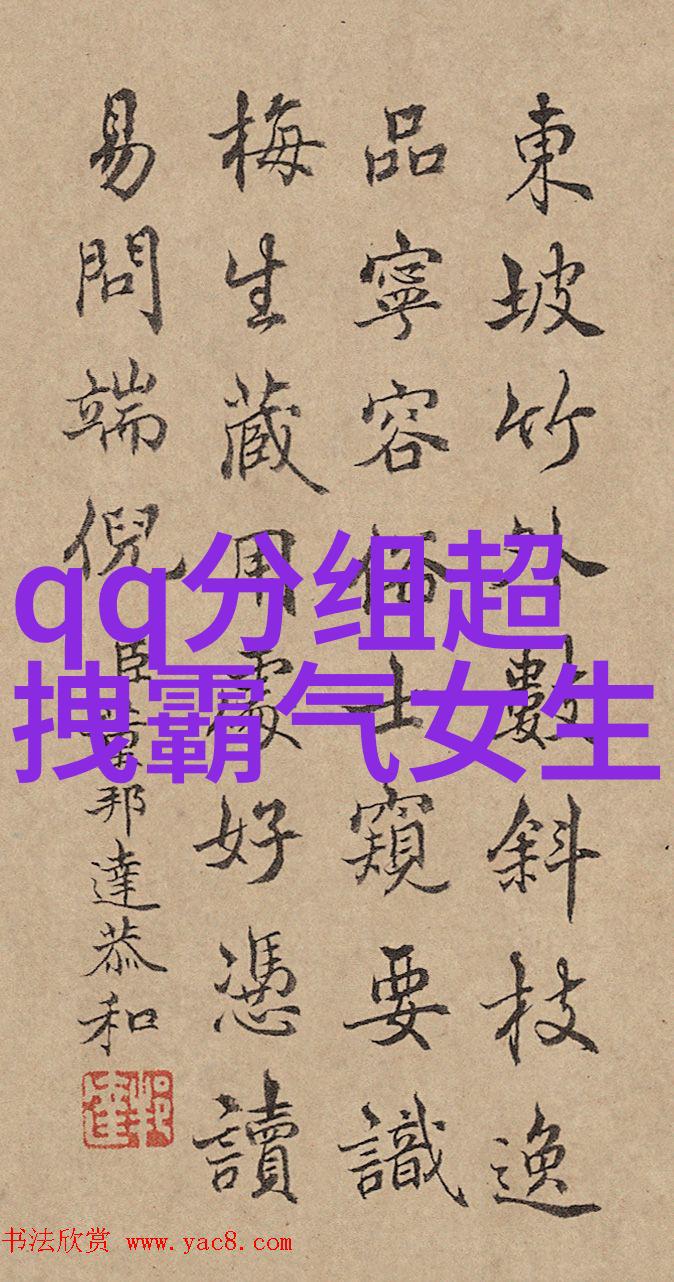 東坡竹外數斜枝逸
品寧容俗士窺要識
梅生蔵用處好憑讀
易問端倪 臣董邦達恭和
qq分组超
拽霸气女生
书法欣赏 www.yac8.com